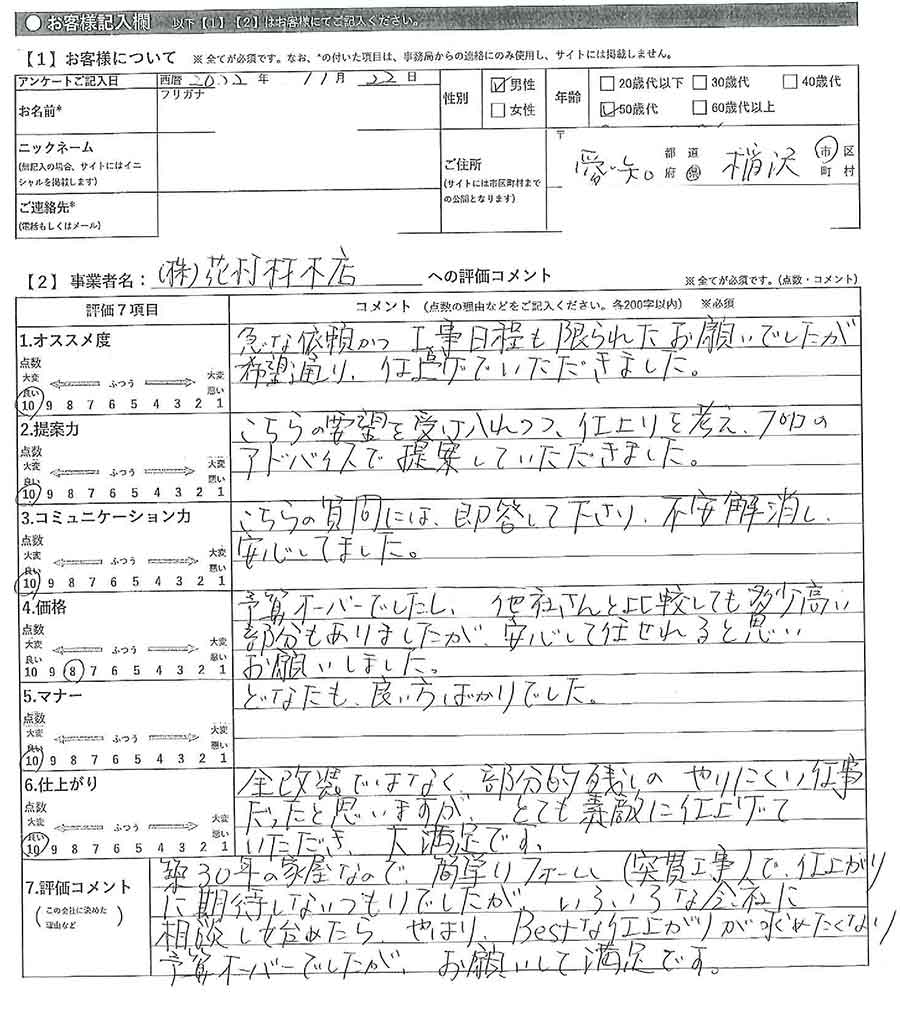 ● お客様記入欄 以下【1】【2】はお客様にてご記入ください。
【1】お客様について ※全てが必須です。なお、*の付いた項目は、事務局からの連絡にのみ使用し、サイトには掲載しません。
アンケートご記入日 西暦 2022 年 11 月 22 日
フリガナ
お名前*
性別 ☑男性 □女性
年齢 □20歳代以下 □30歳代 □40歳代
☑50歳代 □60歳代以上
ニックネーム
(無記入の場合、サイトにはイニ
シャルを掲載します)
ご連絡先*
(電話もしくはメール)
ご住所
(サイトには市区町村まで
の公開となります)
〒
愛知 都道府県 稲沢 市区町村
【2】事業者名：(株)花村材木店 への評価コメント ※全てが必須です。(点数・コメント)
評価7項目 コメント (点数の理由などをご記入ください。各200字以内) ※必須
1.オススメ度
点数
大変良い ふつう 大変悪い
10 9 8 7 6 5 4 3 2 1
急な依頼かつ工事日程も限られたお願いでしたが
希望通り、仕上げていただきました。
2.提案力
点数
大変良い ふつう 大変悪い
10 9 8 7 6 5 4 3 2 1
こちらの要望を受け入れつつ、仕上りを考え、プロの
アドバイスで提案していただきました。
3.コミュニケーション力
点数
大変良い ふつう 大変悪い
10 9 8 7 6 5 4 3 2 1
こちらの質問には、即答して下さり、不安解消し、
安心してました。
4.価格
点数
大変良い ふつう 大変悪い
10 9 8 7 6 5 4 3 2 1
予算オーバーでしたし、他社さんと比較しても多少高い
部分もありましたが、安心して任せれると思い
お願いしました。
5.マナー
点数
大変良い ふつう 大変悪い
10 9 8 7 6 5 4 3 2 1
どなたも、良い方ばかりでした。
6.仕上がり
点数
大変良い ふつう 大変悪い
10 9 8 7 6 5 4 3 2 1
全改装ではなく、部分的残しの やりにくい仕事
だったと思いますが、とても素敵に仕上げて
いただき、大満足です。
7.評価コメント
(この会社に決めた
理由など)
築30年の家屋なので、簡単リフォーム(突貫工事)で、仕上がり
に期待しないつもりでしたが、いろいろな会社に
相談し始めたら、やはり、Bestな仕上がりが求めたくなり
予算オーバーでしたが、お願いして満足です。